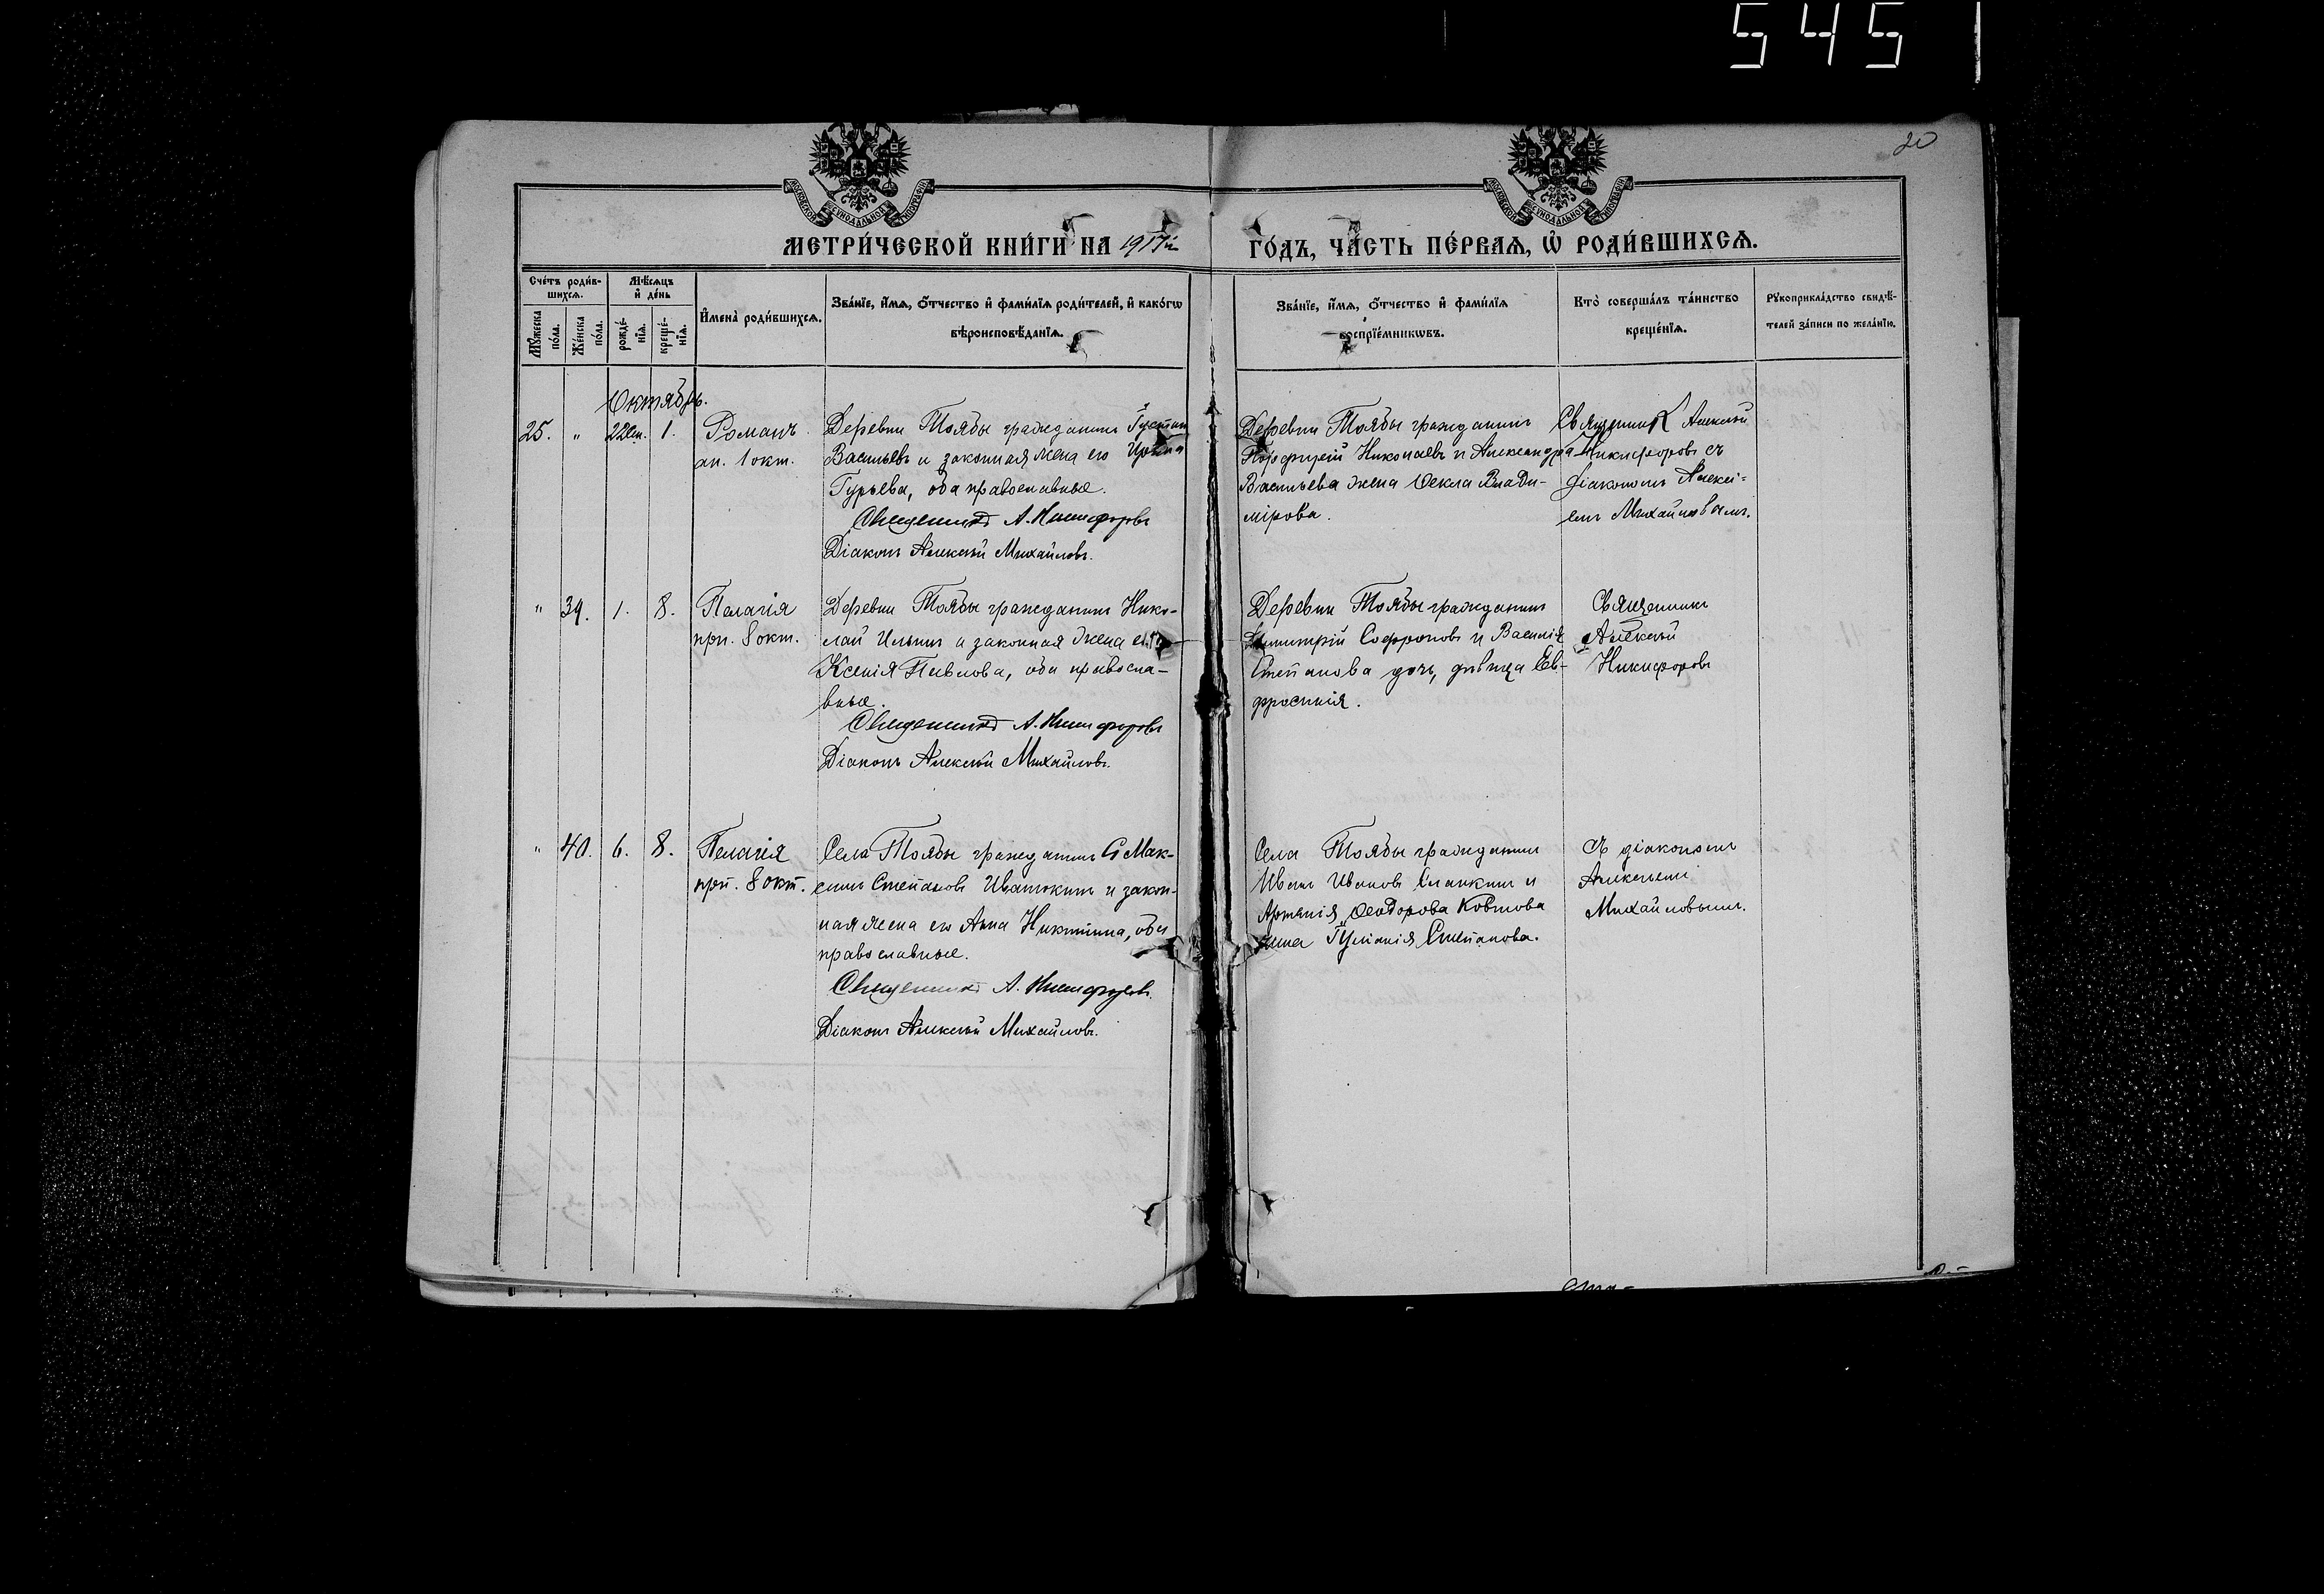 545
20
МОСКОВСКОЙ СѴНОДАЛЬНОЙ ТИПОГРАФІИ
МОСКОВСКОЙ СѴНОДАЛЬНОЙ ТИПОГРАФІИ
МЕТРИ́ЧЕСКОЙ КНИ́ГИ НА 1917й ГО́ДЪ, ЧА́СТЬ ПЕ́РВАѦ, Ѡ҆ РОДИ́ВШИХСѦ.
Сче́тъ роди́в-
шихсѧ.
Мѣ́сѧцъ
и҆ де́нь
Мꙋ́жеска
по́ла.
Же́нска
по́ла.
рожде́-
нїѧ.
креще́-
нїѧ.
И҆мена̀ роди́вшихсѧ.
Зва́нїе, и҆́мѧ, ѻ҆́тчество и҆ фами́лїѧ роди́телей, и҆ како́гѡ
вѣроисповѣ́данїѧ.
Зва́нїе, и҆́мѧ, ѻ҆́тчество и҆ фами́лїѧ
воспрїе́мникѡвъ.
Кто̀ соверша́лъ та́инство
креще́нїѧ.
Рꙋкоприкла́дство свидѣ́-
телей за́писи по жела́нїю.
Октябрь.
25. " 22 сен. 1.
Романъ
ап. 1 окт.
Деревни Тоябы гражданинъ
Васильевъ и законная жена его
Гурьева, оба православные.
Священникъ А. Никифоровъ
Діаконъ Алексѣй Михайловъ.
Деревни Тоябы гражданинъ
Порфирій Николаевъ и Александра
Васильева жена Ѳекла Влади-
мірова.
Священникъ Алексѣй
Никифоровъ съ
діакономъ Алексѣ-
емъ Михайловымъ.
" 39. 1. 8.
Пелагія
прп. 8 окт.
Деревни Тоябы гражданинъ Нико-
лай Ильинъ и законная жена его
Ксенія Павлова, оба правосла-
вные.
Священникъ А. Никифоровъ
Діаконъ Алексѣй Михайловъ.
Деревни Тоябы гражданинъ
Димитрій Софроновъ и Василія
Степанова дочь, дѣвица Ев-
фросинія.
Священникъ
Алексѣй
Никифоровъ
" 40. 6. 8.
Пелагія
прп. 8 окт.
Села Тоябы гражданинъ Мак-
симъ Степановъ и закон-
ная жена его Анна Никитина, оба
православные.
Священникъ А. Никифоровъ.
Діаконъ Алексѣй Михайловъ.
Села Тоябы гражданинъ
Иванъ Ивановъ и
Ѳеодорова
жена Степанова.
Съ діакономъ
Алексѣемъ
Михайловымъ.